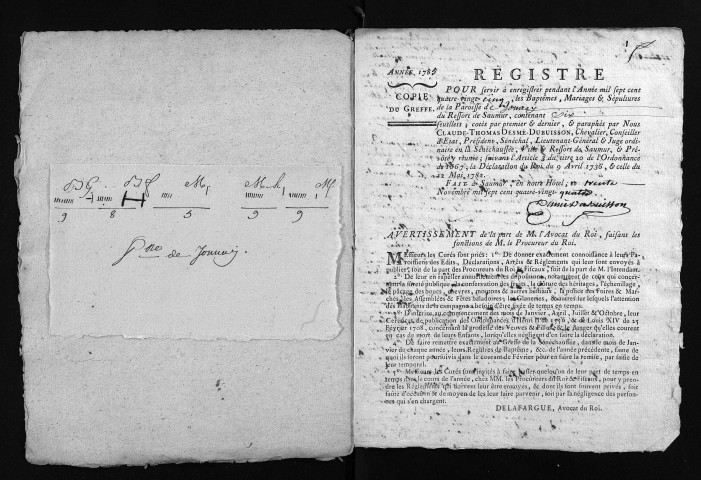 9 8 5 9 9
de Jouvain
ANNÉE, 1785
COPIE
DU GREFFE.
REGISTRE
POUR servir à enregistrer pendant l'Année mil sept cent
quatre-vingt-cinq, les Baptêmes, Mariages & Sépultures
de la Paroisse de
du Ressort de Saumur, contenant Six
feuillets; cotés par premier & dernier, & paraphés par Nous
CLAUDE-THOMAS DESMÉ-DUBUISSON, Chevalier, Conseiller
d'Etat, Président, Sénéchal, Lieutenant-Général & Juge ordi-
naire en la Sénéchaussée, Ville & Ressort de Saumur, & Pré-
vôté y réunie; suivant l'Article 3 du titre 20 de l'Ordonnance
de 1667, la Déclaration du Roi du 9 Avril 1736, & celle du
12 Mai, 1782.
FAIT à Saumur, en notre Hôtel, le trente
Novembre mil sept cent quatre-vingt-quatre.
Desmé Dubuisson
AVERTISSEMENT de la part de M. l'Avocat du Roi, faisant les
fonctions de M. le Procureur du Roi.
MESSIEURS les Curés sont priés: 1°. De donner exactement connoissance à leurs Pa-
roissiens des Edits, Déclarations, Arrêts & Réglements qui leur sont envoyés à
publier, soit de la part des Procureurs du Roi & Fiscaux, soit de la part de M. l'Intendant.
2°. De leur en rappeller annuellement les dispositions, notamment de ceux qui concer-
nent la sûreté publique, la conservation des fruits, la clôture des héritages, l'échenillage,
le pacage des boucs, chevres, moutons & autres bestiaux, la police des Foires & Mar-
chés, les Assemblées & Fêtes baladoires, les Glaneries, & autres sur lesquels l'attention
des Habitants de la campagne a besoin d'être fixée de temps en temps.
3°. D'instruire au commencement des mois de Janvier, Avril, Juillet & Octobre, leur
de publication des Ordonnances d'Henri II de 1556, & de Louis XIV du 25
Février 1708, concernant la grossesse des Veuves & Filles, & le danger qu'elles courent
en cas de mort de leurs Enfants, lorsqu'elles négligent d'en faire la déclaration.
4°. De faire remettre exactement au Greffe de la Sénéchaussée, dans le mois de Jan-
vier de chaque année, leurs Registres de Baptême, &c. de l'année précédente, faute de
quoi ils seront poursuivis dans le courant de Février pour en faire la remise, par saisie de
leur temporel.
5°. Messieurs les Curés sont invités à faire passer quelqu'un de leur part de temps en
temps dans le cours de l'année, chez MM. les Procureurs du Roi & Fiscaux, pour y pren-
dre les Réglements qui doivent leur être envoyés, & dont ils sont souvent privés, soit
faute d'occasion & de moyen de les leur faire parvenir, soit par la négligence des person-
nes qui s'en chargent.
DELAFARGUE, Avocat du Roi.